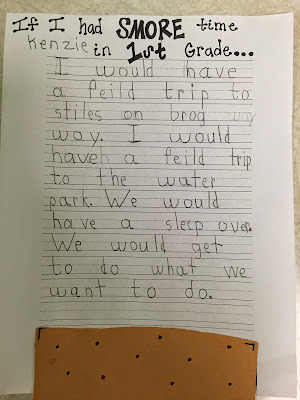 If I had SMORE time
Kenzie in 1st Grade...
I would have
a feild trip to
stiles on brog way
way. I would
haveh a feild trip
to the water
park. We would
have a sleep over.
We would get
to do what we
want to do.